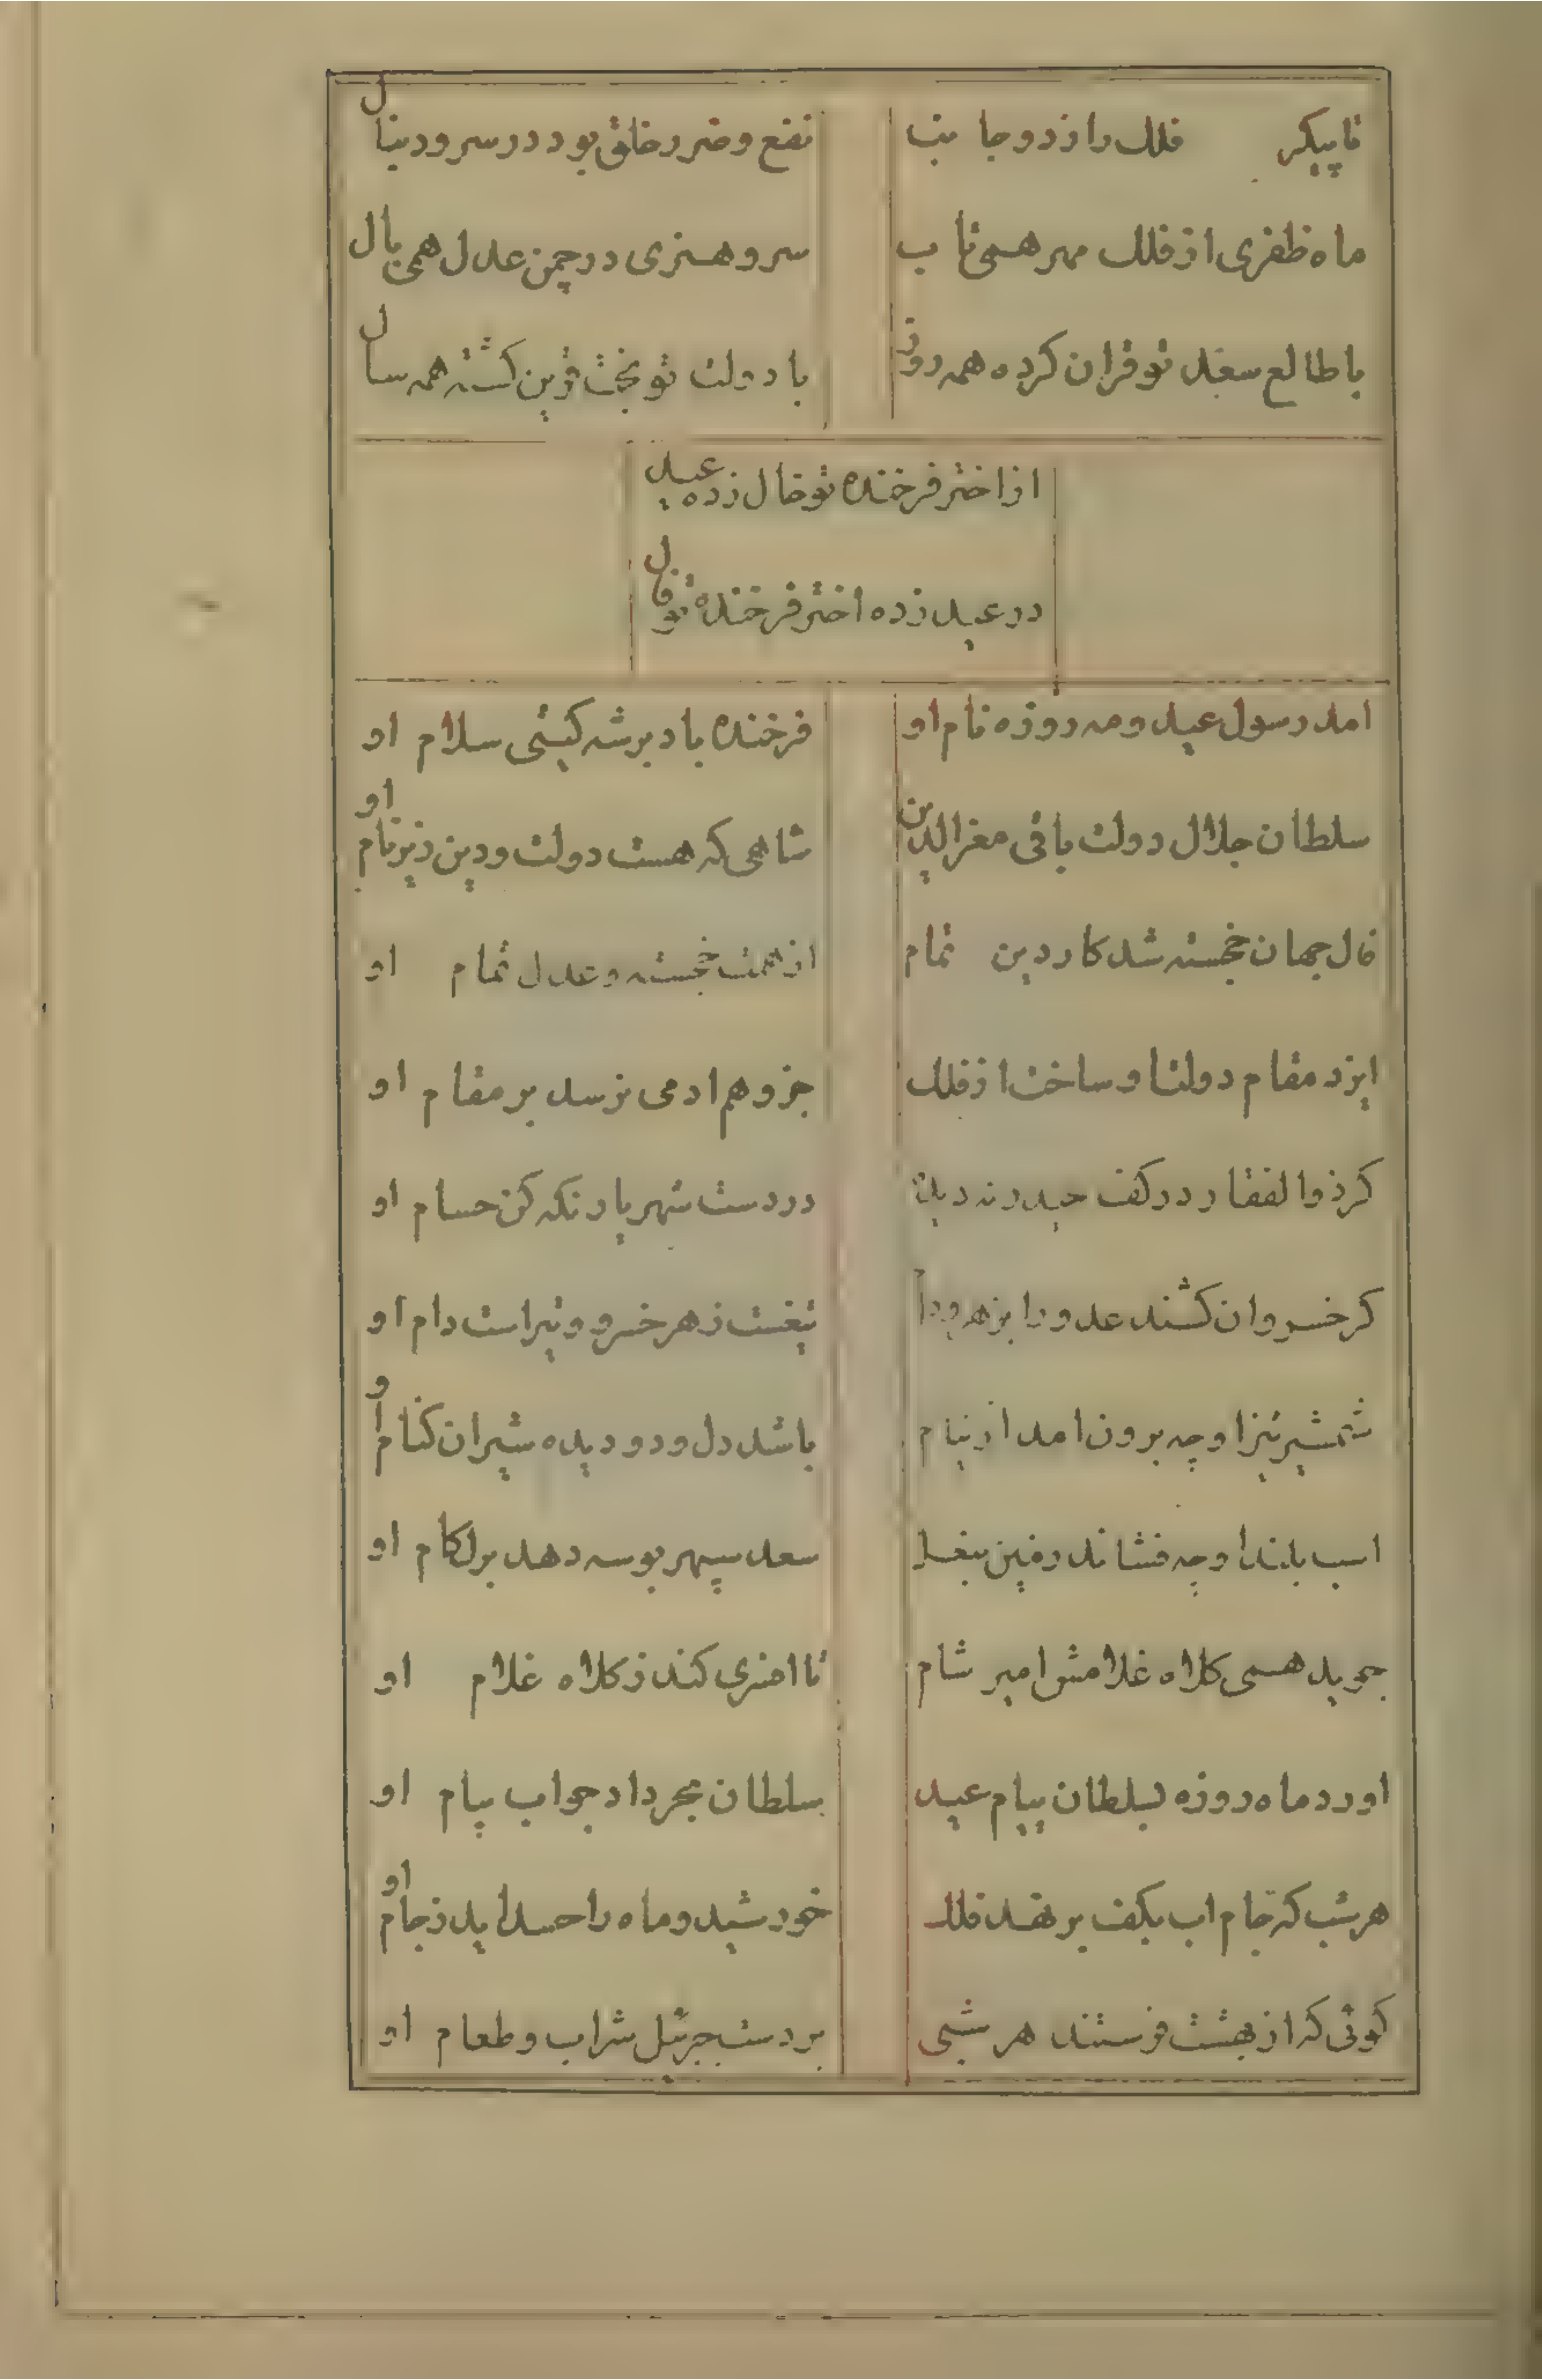 تا پیکر فلك را ز دو جا نب نفع و ضرر خلق بود در سرو دنبال
ماه ظفری از فلك مهر همی تا ب سرو هنری در چمن عدل همی بال
با طالع سعد تو قران کرده همه روز با دولت تو بخت قرین کشته همه سال
از اختر فرخنده تو فال زده عید
در عید زده اختر فرخنده تو فال
امد رسول عید و مه روزه نام او فرخنده باد بر شه کیتی سلام او
سلطان جلال دولت باقی معزالدین شاهی که هست دولت و دین زیر نام او
فال جهان خجسته شد کار دین تمام از همت خجسته و عدل تمام او
ایزد مقام دولت او ساخت از فلك جز وهم ادمی نرسد بر مقام او
کر ذوالفقار در کف حیدر ندیدۀ در دست شهریار نکه کن حسام او
کر خسروان کشند عدو را بزهر و دام تیغست زهر خسرو و تیر است دام او
شمشیر تیز او چه برون امد از نیام باشد دل و دو دیده شیران کنام او
اسب بلند او چه فشاند زمین بنعل سعد سپهر بوسه دهد بر لکام او
جوید همی کلاه غلامش امیر شام تا افسری کند ز کلاه غلام او
اورد ماه روزه بسلطان پیام عید سلطان بجر داد جواب پیام او
هر شب که جام اب بکف بر نهد فلك خورشید و ماه را حسد اید ز جام او
کوئی که از بهشت فرستند هر شبی بر دست جبرئیل شراب و طعام او